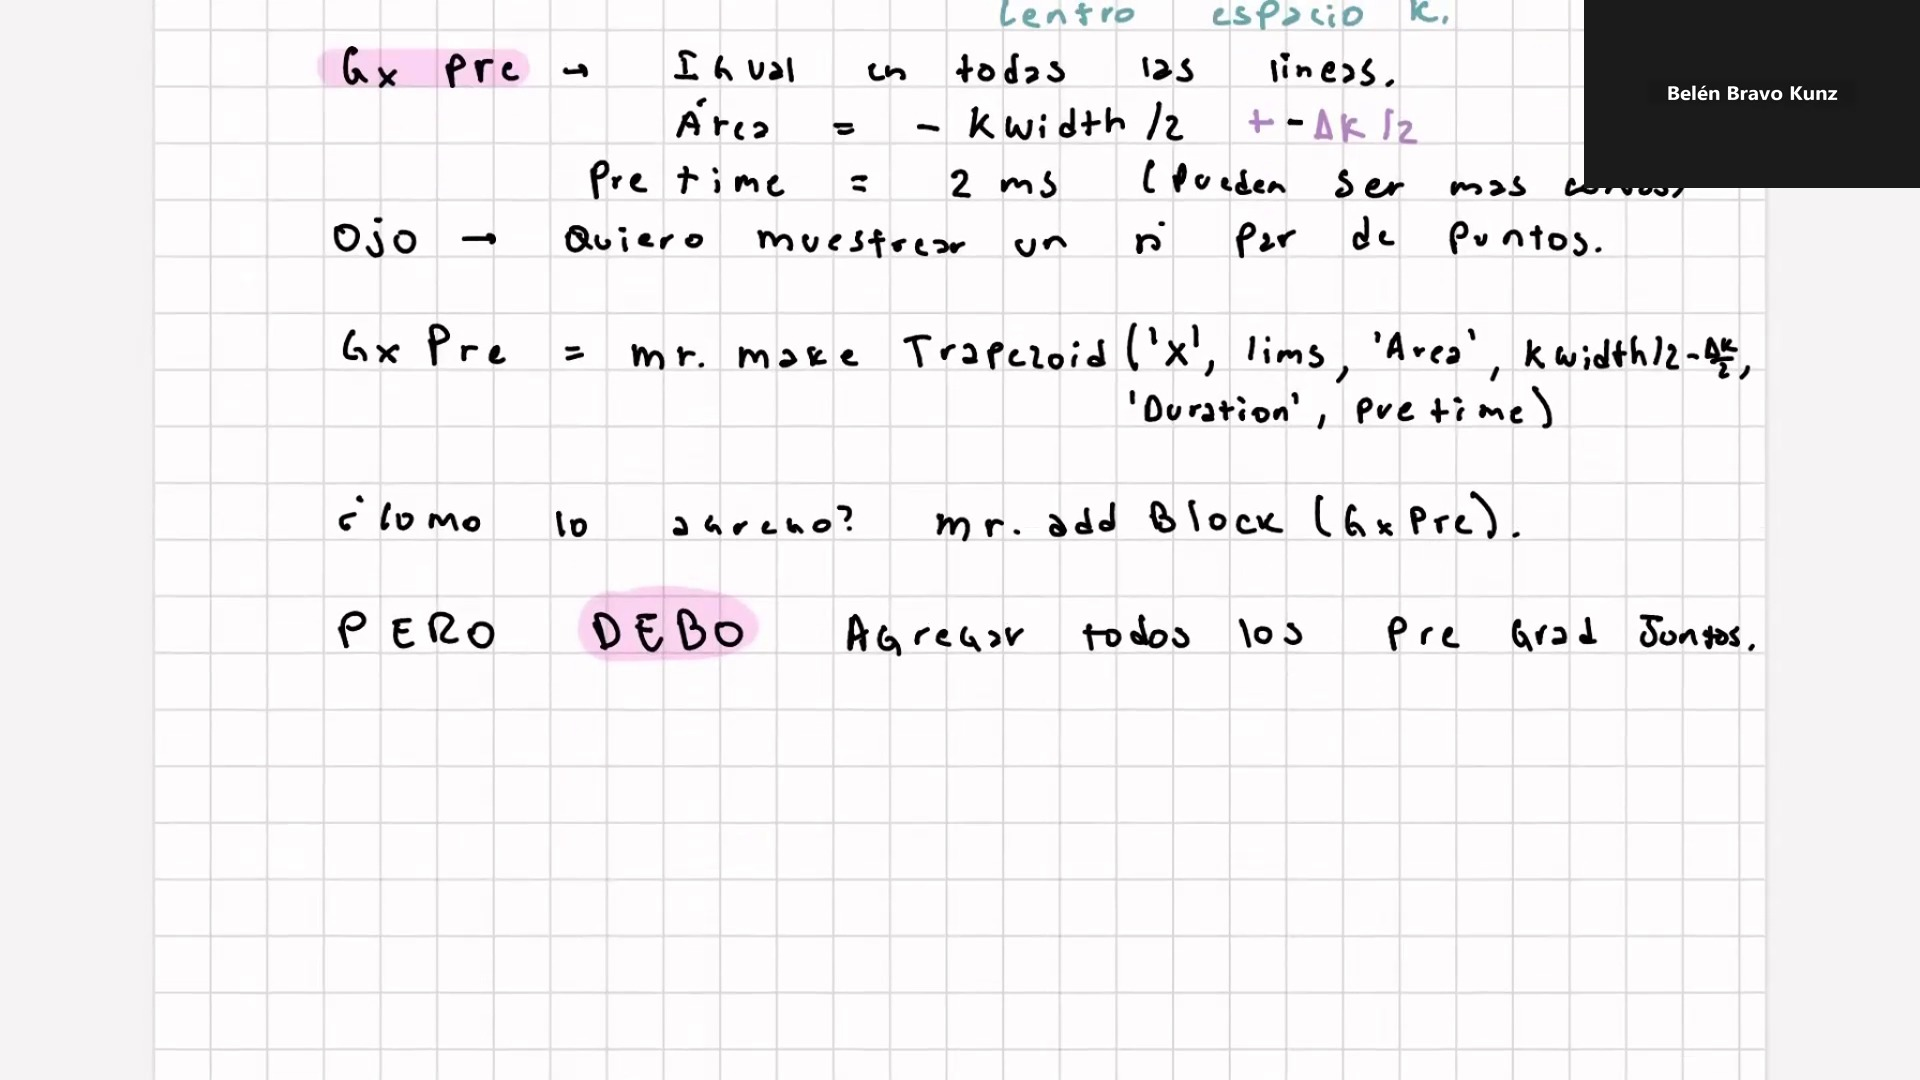 Centro espacio K.
Gx Pre → Igual en todas las lineas.
Área = - Kwidth /2 + - ΔK /2
Pre time = 2 ms (Pueden ser mas
Ojo → Quiero muestrear un n° Par de Puntos.
Gx Pre = mr. make Trapezoid ('X', lims, 'Area', Kwidth/2 - ΔK/2,
'Duration', pre time)
¿Como lo agrego? mr. add Block (Gx Pre).
PERO DEBO Agregar todos los Pre Grad Juntos.
Belén Bravo Kunz